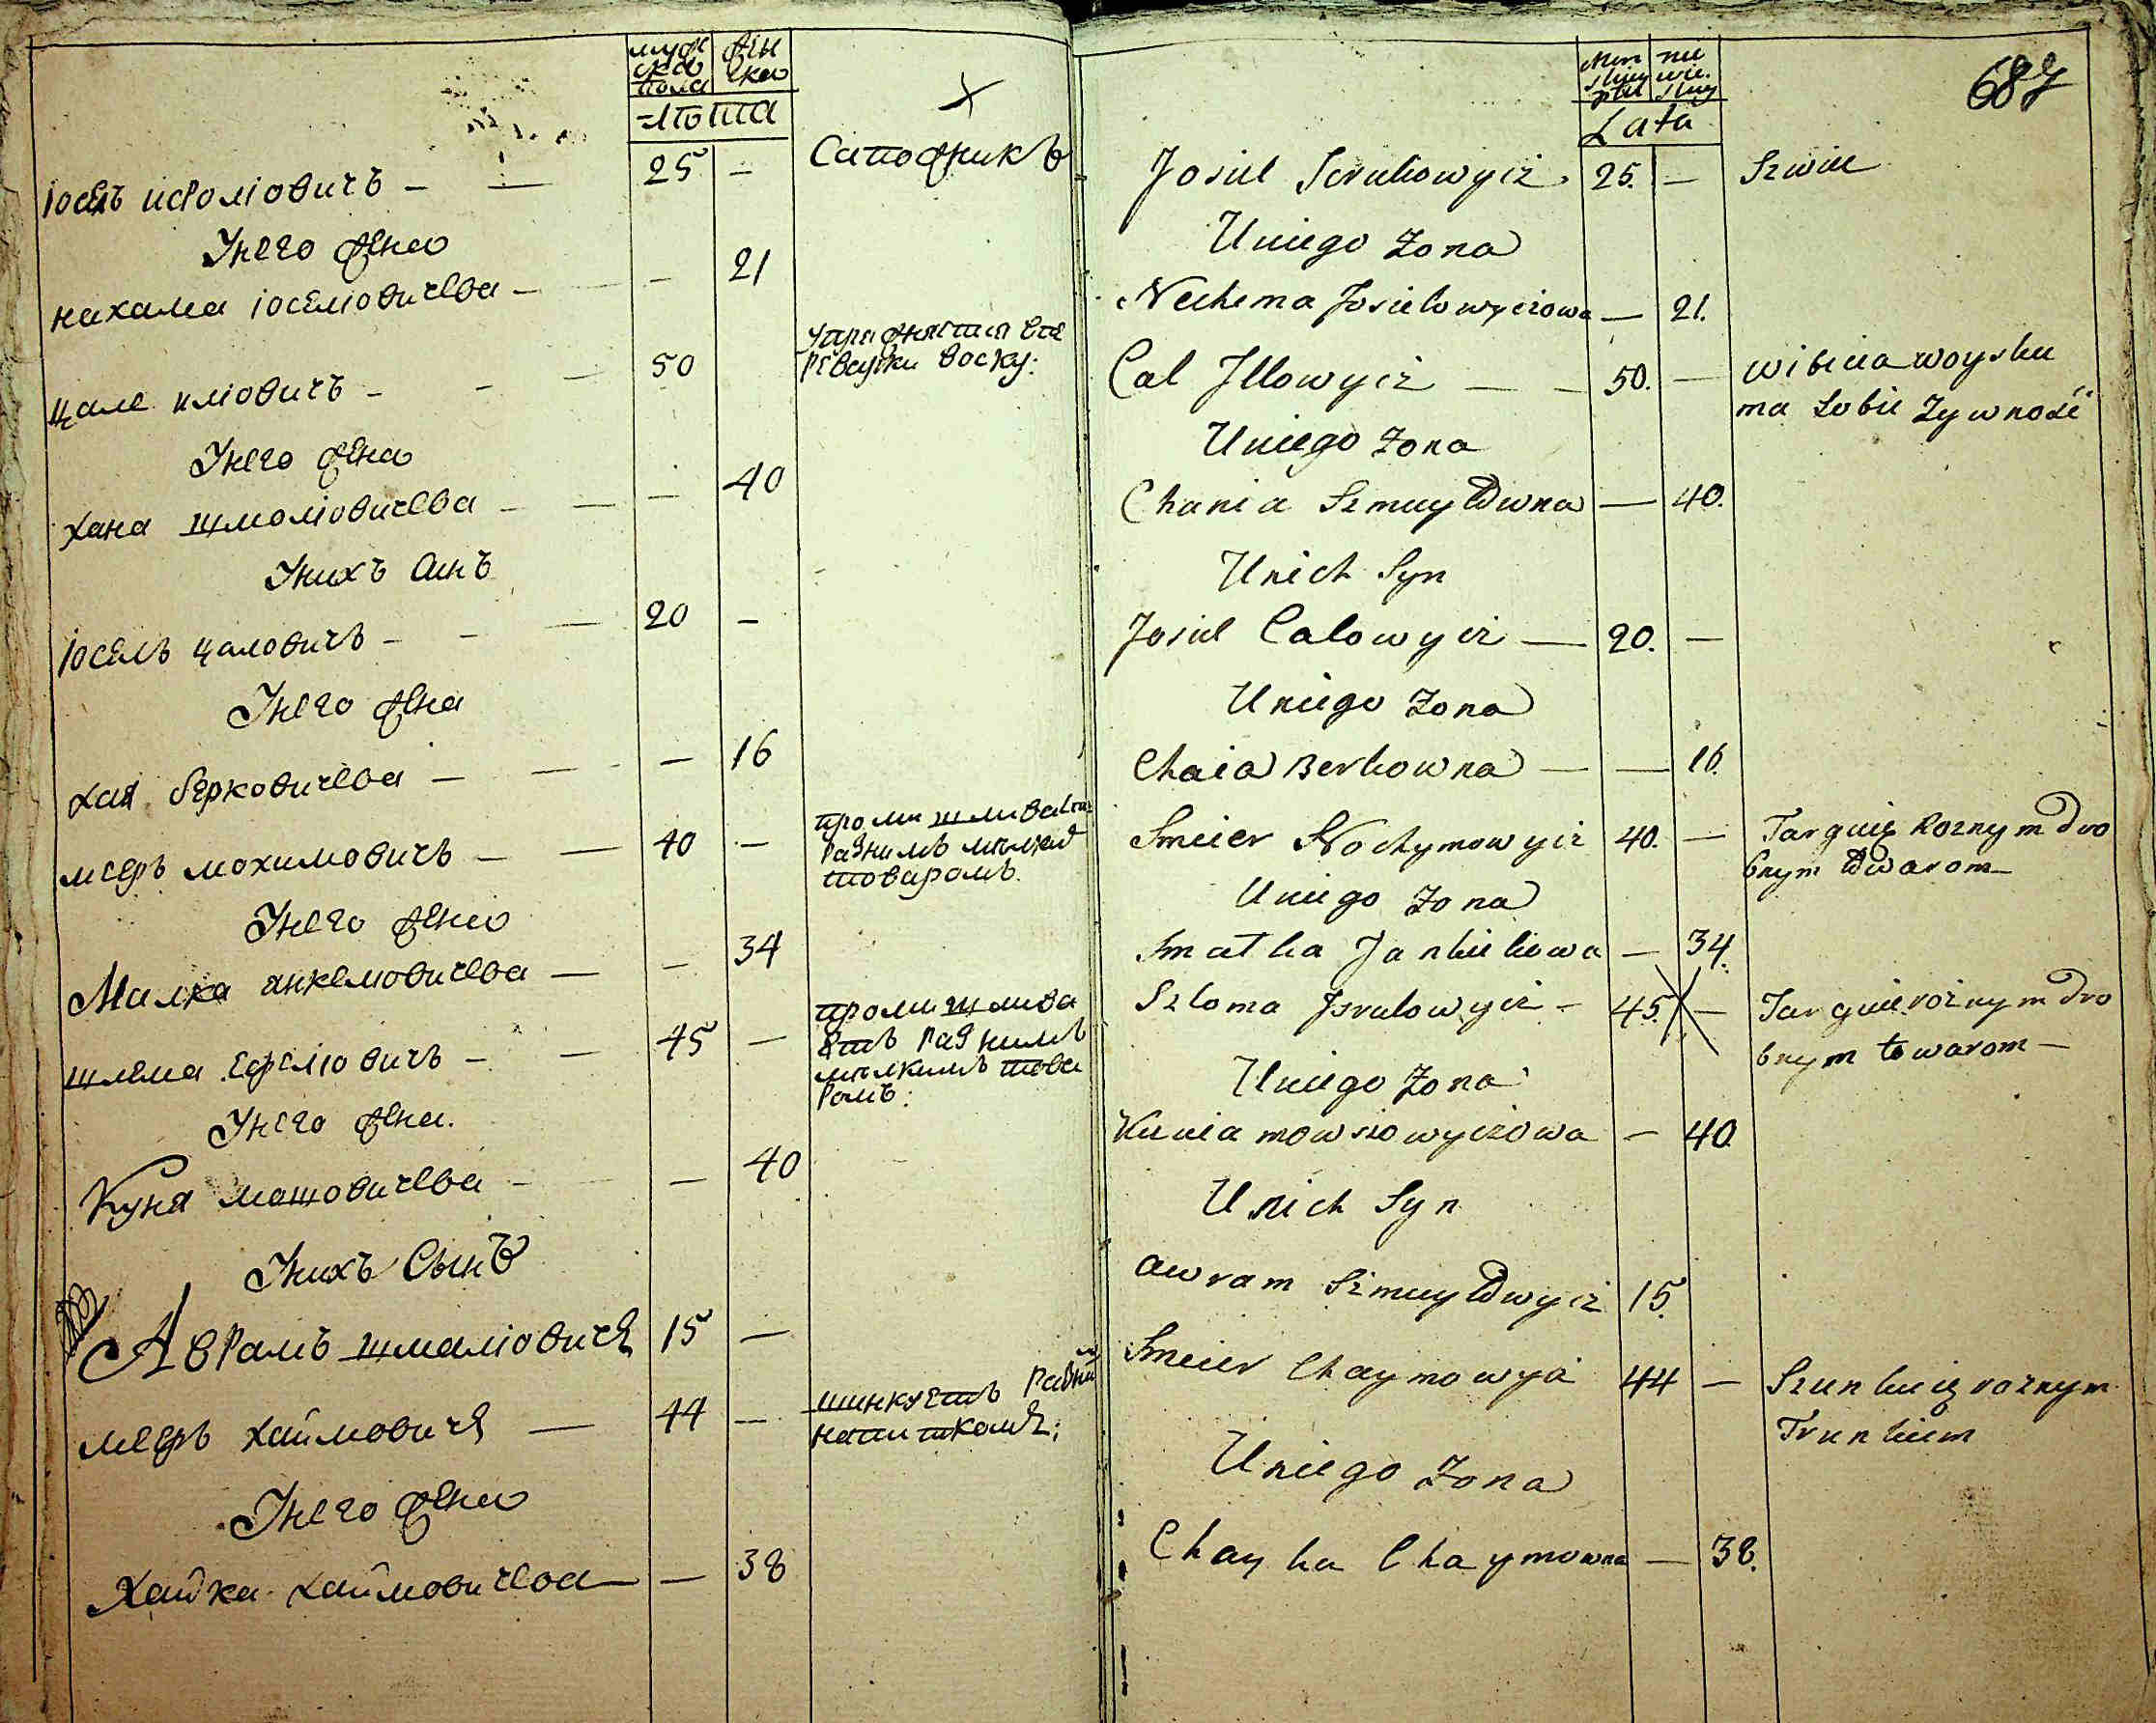 муж
ска
пола
жен
ска
лѣта
Сапожникъ
іосель исролiовичъ - — 25 -
Унего жена
нахама іоселiовичева - - 21
цале илiовичъ - - — 50
упражняется вы
Унего жена
хана шмолiовичева - — — 40
Унихъ синъ
іосель цаловичъ - - — 20 -
Унего жена
хая берковичева - — - — 16
меерь мохимовичъ - — 40 -
промишлива
разнимъ мелким
товаромъ.
Унего жена
Малка янкелювичева — - 34
шлема - — 45 -
промишлива
етъ разнимъ
мелкимъ това
ромъ:
Унего жена.
Куня мошовичева - - 40
Унихъ Сынъ
Аврамъ шмалiовичъ 15 —
меерь хаймовичъ — 44 —
шинкуетъ разни
напиткомъ;
Унего жена
Хайка хаймовичева — — 38
687
Lata
Josiel Srulowycz 25. — Szwiec
Uniego Zona
Nechema Josielowyczowa — 21.
Cal Jllowycz — — 50. — 
ma Sobie Zywność
Uniego Zona
Chania Szmuylowna — 40.
Unich Syn
Josiel Calowycz — 20. —
Uniego Zona
Chaia Berkowna — — 16.
Smeier Nochymowycz 40. — Targuię Roznym dro
bnym towarom—
Uniego Zona
Smalka Jankielowa — 34.
Szloma Jsrulowycz - 45. — Targuie roznym dro
bnym towarom —
Uniego Zona
Kunia mowszowyczowa — 40
Unich Syn
awram Szmuylowycz 15.
Smeier Chaymowycz 44 — Szunkuię roznym
Trunkiem
Uniego Zona
Chayka Chaymowna — 38.